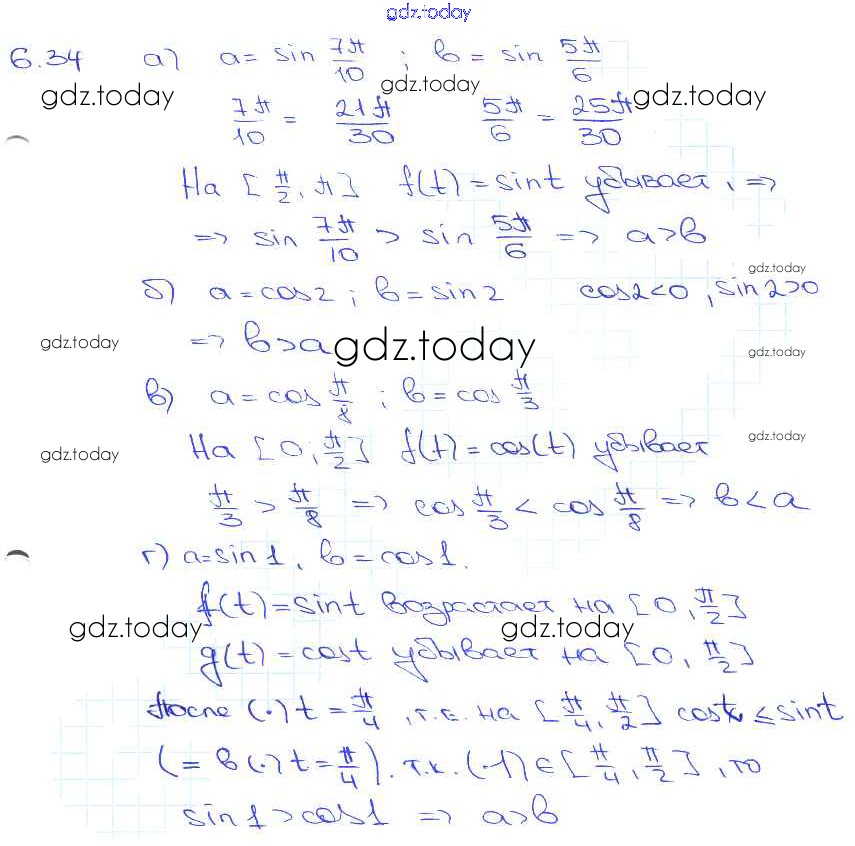 gdz.today
6.34 а) a = sin 7π/10 ; b = sin 5π/6
gdz.today gdz.today gdz.today
7π/10 = 21π/30 5π/6 = 25π/30
На [π/2, π] f(t) = sint убывает, =>
=> sin 7π/10 > sin 5π/6 => a>b
gdz.today
б) a = cos2 ; b = sin2 cos2<0 , sin2>0
=> b>a
gdz.today gdz.today gdz.today
в) a = cos π/8 ; b = cos π/3
На [0; π/2] f(t) = cos(t) убывает
gdz.today gdz.today
π/3 > π/8 => cos π/3 < cos π/8 => b < a
г) a=sin1, b = cos1.
f(t) = sint возрастает на [0, π/2]
gdz.today gdz.today
g(t) = cost убывает на [0, π/2]
После (·) t = π/4, т.е. на [π/4, π/2] cost ≤ sint
(= в (·) t = π/4). т.к. (·1) ∈ [π/4, π/2], то
sin1 > cos1 => a>b